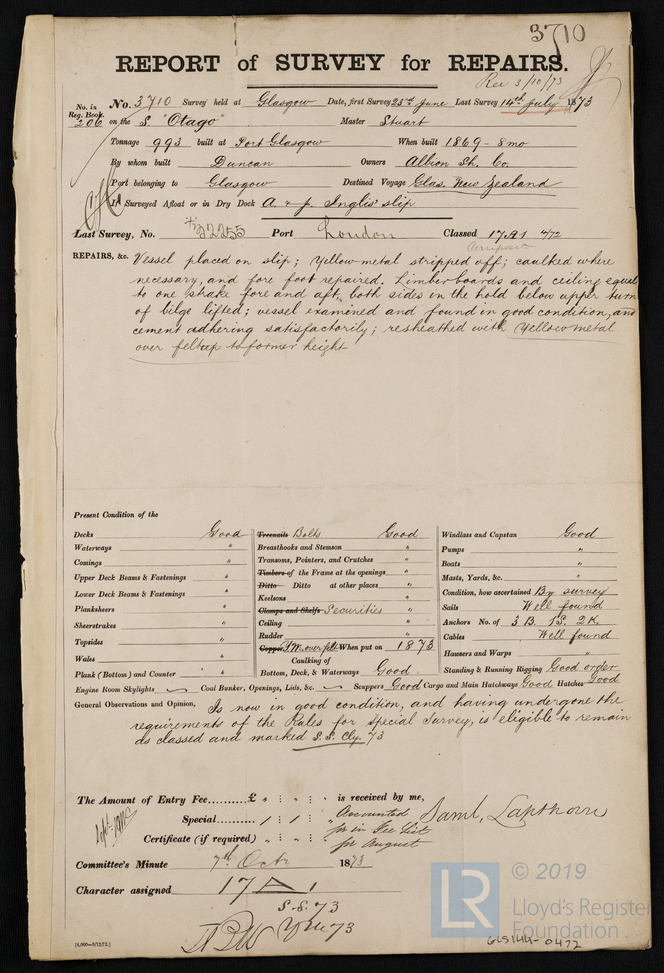 3710
REPORT of SURVEY for REPAIRS.
Rec 3/10/73
No. in Reg. Book. 206
No. 3710 Survey held at Glasgow Date, first Survey 23rd June Last Survey 14th July 1873
on the S "Otago" Master Stuart
Tonnage 993 built at Port Glasgow When built 1869 - 8mo
By whom built Duncan Owners Albion Sh. Co.
Port belonging to Glasgow Destined Voyage Glas. New Zealand
If Surveyed Afloat or in Dry Dock A. & J. Inglis' slip
Last Survey, No. 22255 Port London Classed 17 A1 4/72
Composite
REPAIRS, &c. Vessel placed on slip; Yellow metal stripped off; caulked where
necessary, and fore foot repaired. Limberboards and ceiling equal
to one strake fore and aft, both sides in the hold below upper turn
of bilge lifted; vessel examined and found in good condition, and
cement adhering satisfactorily; resheathed with Yellow metal
over felt up to former height
Present Condition of the
Decks Good
Waterways "
Comings "
Upper Deck Beams & Fastenings "
Lower Deck Beams & Fastenings "
Planksheers "
Sheerstrakes "
Topsides "
Wales "
Plank (Bottom) and Counter "
Treenails Bolts Good
Breasthooks and Stemson "
Transoms, Pointers, and Crutches "
Timbers of the Frame at the openings "
Ditto Ditto at other places "
Keelsons "
Clamps and Shelfs Securities "
Ceiling "
Rudder "
Copper Y.M. over felt When put on 1873
Caulking of
Bottom, Deck, & Waterways Good
Windlass and Capstan Good
Pumps "
Boats "
Masts, Yards, &c. "
Condition, how ascertained By survey
Sails Well found
Anchors No. of 3 B. 1S. 2K.
Cables Well found
Hausers and Warps "
Standing & Running Rigging Good order
Engine Room Skylights Coal Bunker, Openings, Lids, &c. Scuppers Good Cargo and Main Hatchways Good Hatches Good
General Observations and Opinion, Is now in good condition, and having undergone the
requirements of the Rules for Special Survey, is eligible to remain
as classed and marked S.S. Cly. 73
The Amount of Entry Fee.......... £ " : " : " is received by me,
Special.......... 1 : 1 : " Accounted
for in Fee List
for August
Saml. Lapthorn
Certificate (if required) " : " : "
Committee's Minute 7th Octr 1873
Character assigned 17 A 1
S.S. 73
YM 73
[4,000—9/12/72.]
LR © 2019
Lloyd's Register
Foundation
GLS144-0472